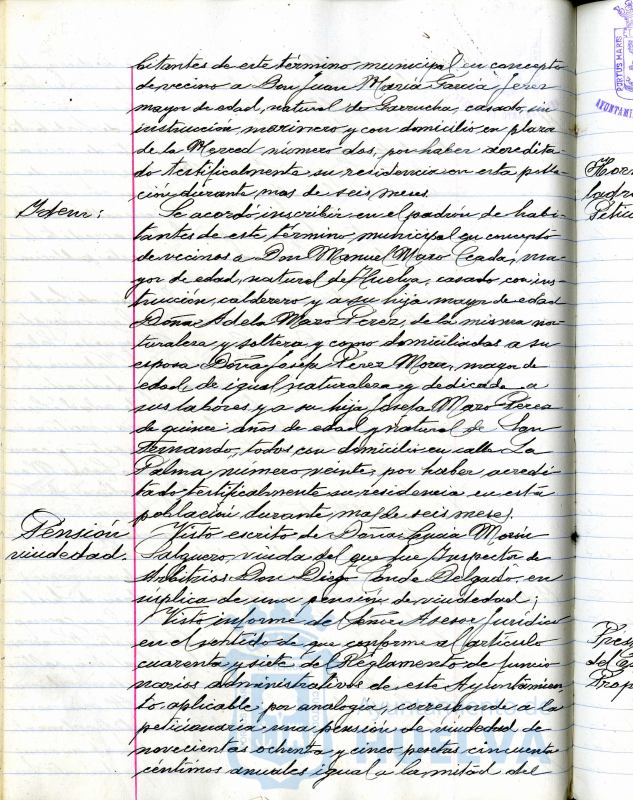 bitantes de este término municipal en concepto
de vecino a Don Juan María García Jerez
mayor de edad, natural de Garrucha, casado, sin
instrucción, marinero y con domicilio en plaza
de la Merced número dos, por haber acredita-
do testificalmente su residencia en esta pobla-
ción durante mas de seis meses.
Idem:
Se acordó inscribir en el padrón de habi-
tantes de este término municipal en concepto
de vecinos a Don Manuel Mazo Ceada, ma-
yor de edad, natural de Huelva, casado, con ins-
trucción, calderero, y a su hija mayor de edad
Doña Adela Mazo Perez, de la misma na-
turaleza y soltera, y como domiciliadas a su
esposa Doña Josefa Perez Mora, mayor de
edad, de igual naturaleza y dedicada a
sus labores, y a su hija Josefa Mazo Perez
de quince años de edad y natural de San
Fernando, todos con domicilio en calle La
Palma, número veinte, por haber acredi-
tado testificalmente su residencia en esta
población durante mas de seis meses.
Pensión
viudedad.
Visto escrito de Doña Morón
Salguero, viuda del que fue Inspector de
Arbitrios Don Diego Conde Delgado, en
súplica de una pensión de viudedad;
Visto informe del Señor Asesor Jurídico
en el sentido de que conforme al artículo
cuarenta y siete del Reglamento de funcio-
narios administrativos de este Ayuntamien-
to, aplicable por analogía, corresponde a la
peticionaria una pensión de viudedad de
novecientas ochenta y cinco pesetas cincuenta
céntimos anuales igual a la mitad del
PORTUS MARIS